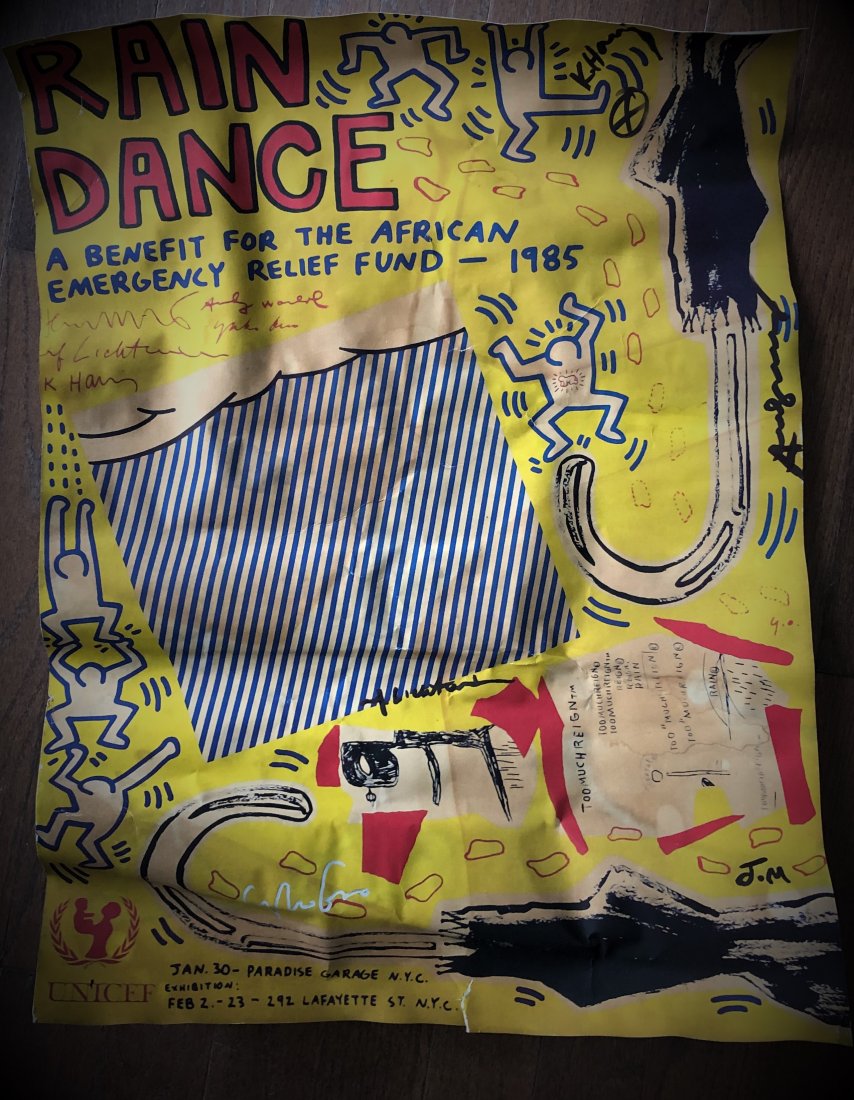 RAIN
DANCE
A BENEFIT FOR THE AFRICAN
EMERGENCY RELIEF FUND — 1985
K. Haring
Andy Warhol
yoko ono
rf Lichtenstein
K Haring
rf Lichtenstein
TOOMUCHREIGN™
TOOMUCHREIGN©
TOOMUCHREIGN™
REIGN
RAIN
TOO "MUCH REIGN®
TOO "MUCHREIGN©
RAIN©
y.o.
J.M
UNICEF
JAN. 30 - PARADISE GARAGE N.Y.C.
EXHIBITION:
FEB 2.-23 - 292 LAFAYETTE ST. N.Y.C.